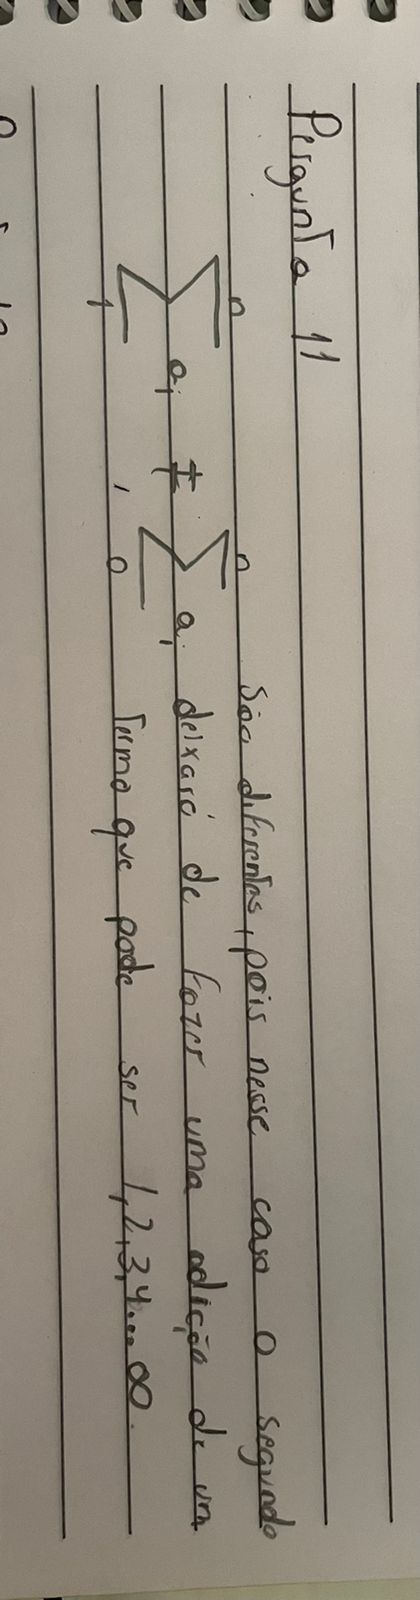 Pergunta 11
n n São diferentes, pois nesse caso o segundo
∑ ai ≠ ∑ ai deixará de fazer uma adição de um
1 , 0 Termo que pode ser 1,2,3,4...∞.